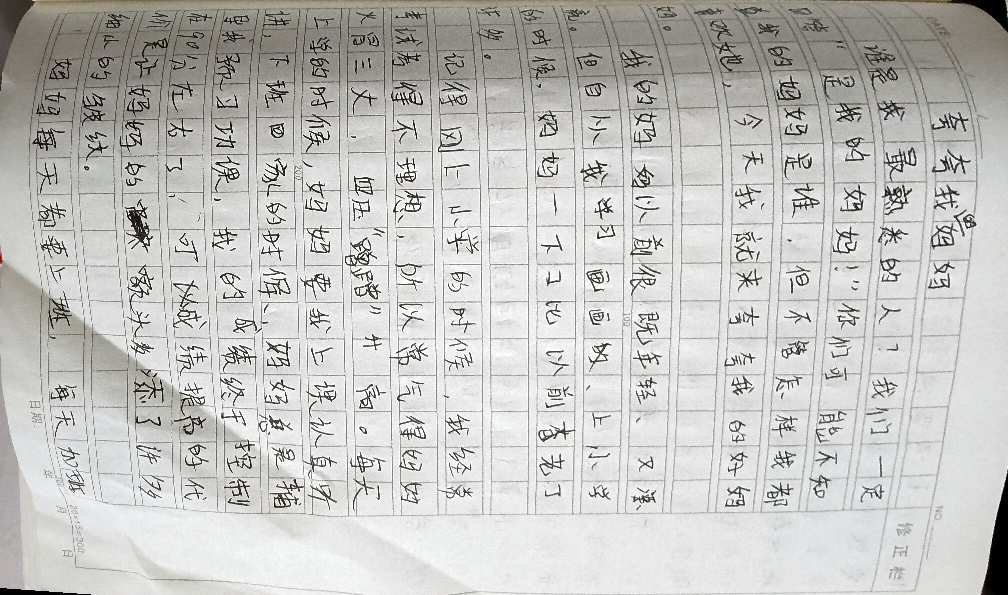 夸夸我妈妈
谁是我最熟悉的人？我们一定
"是我的妈妈！"你们可能不知
我的妈妈是谁．但不管怎样我都
喜欢她，今天我就来夸夸我的好妈
妈。
我的妈妈以前很既年轻、又漂
亮。但自从我学习画画以、上小学
的时候，妈妈一下子比以前老了
许多。
记得刚上小学的时候，我经常
考试考得不理想，所以常气得妈妈
火冒三丈，血压"蹭蹭"升高。每天
上学的时候，妈妈要我上课认真听
讲，下班回家的时候，妈妈总是辅
导我和了功课，我的成绩终于控制
在90分左右了，可以成绩提高的代
价是让妈妈的额头多添了许多
细小的皱纹。
妈妈每天都要上班，每天加班
修正栏
DATE
NO.
日期：
年
月
日